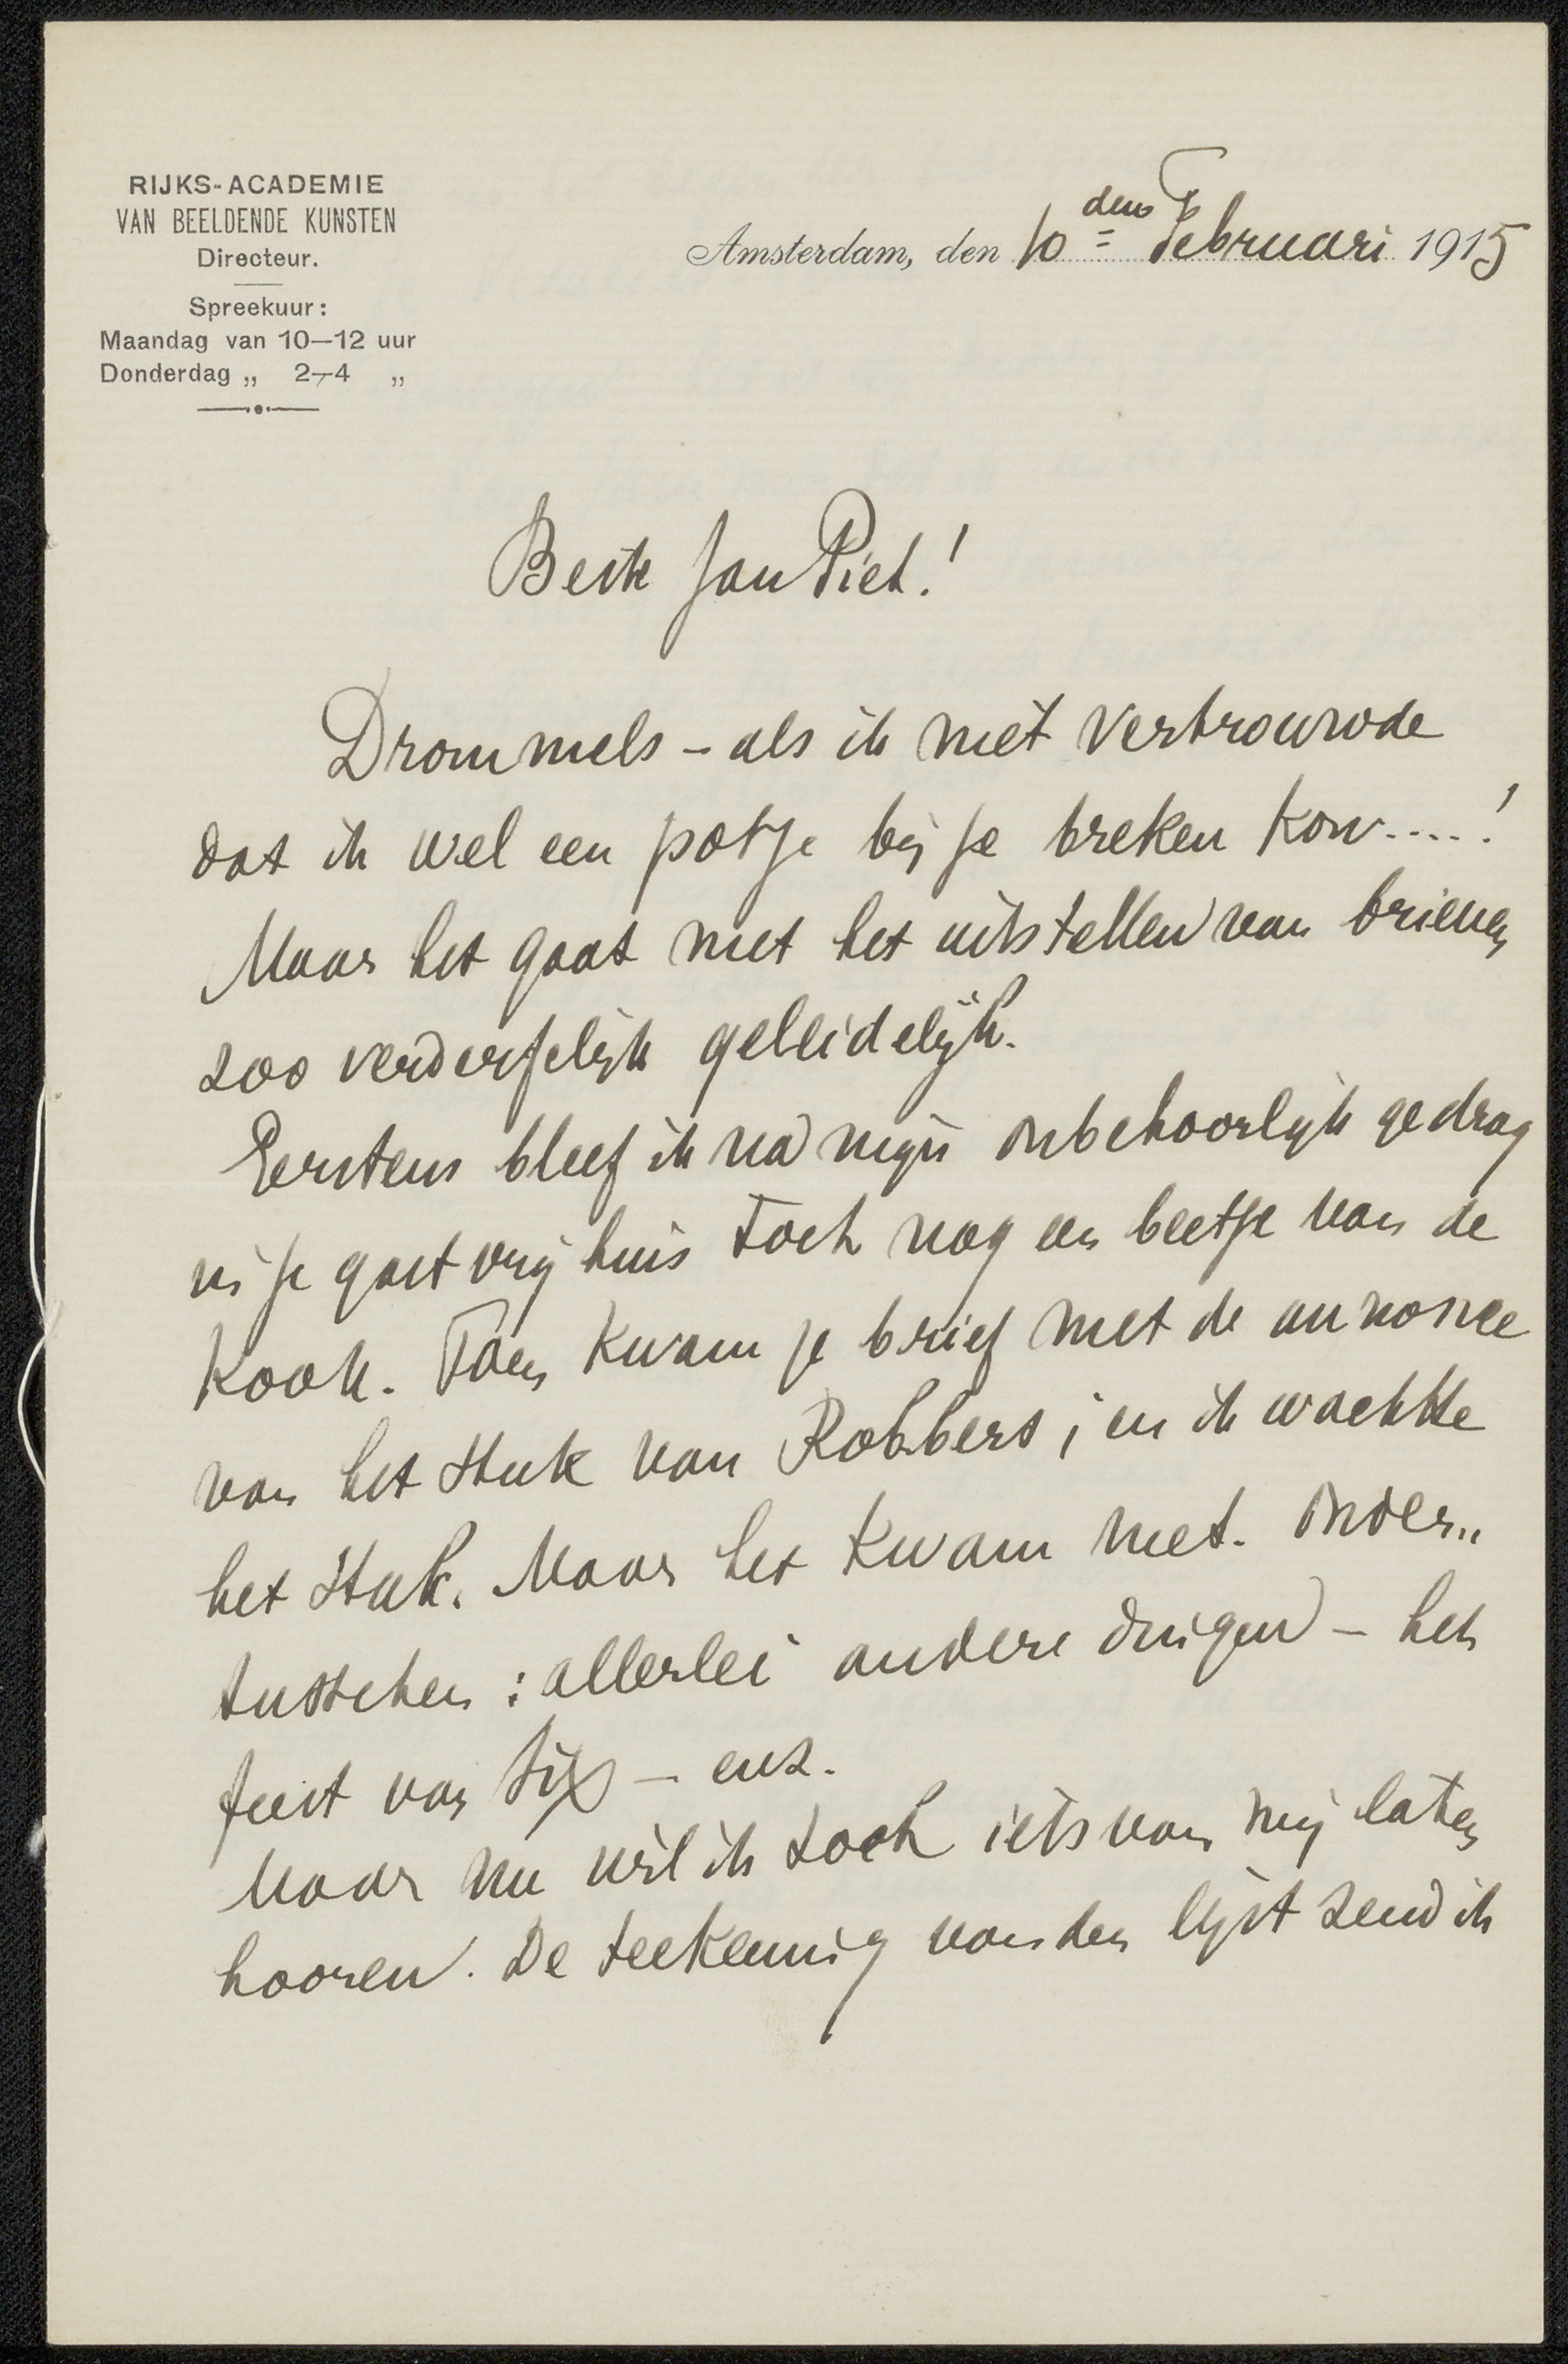 RIJKS-ACADEMIE
VAN BEELDENDE KUNSTEN
Directeur.
Spreekuur:
Maandag van 10—12 uur
Donderdag „ 2—4 „
Amsterdam, den 10den Februari 1915
Beste Jan Piet!
Drommels – als ik niet vertrouwde
dat ik wel een potje bij je breken kon....!
Maar het gaat met het uitstellen van brieven
zoo verderfelijk geleidelijk.
Eerstens bleef ik na mijn onbehoorlijk gedrag
in je gastvrij huis toch nog een beetje van de
kook. Toen kwam je brief met de annonce
van het stuk van Robbers; en ik wachtte
het stuk. Maar het kwam niet. Onder„
tusschen : allerlei andere dingen – het
feest van Six – enz.
Maar nu wil ik toch iets van mij laten
hooren. De teekening van den lijst zend ik